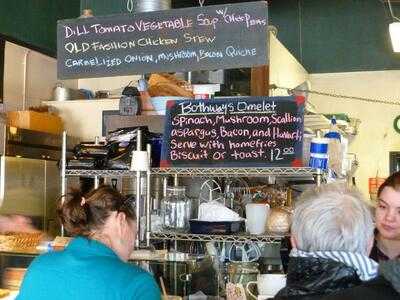 Dill Tomato Vegetable Soup w/ Chickpeas
Old Fashion Chicken Stew
Carmelized Onion, Mushroom, Bacon Quiche
Bothways Omelet
Spinach, Mushroom, Scallion
aspargus, Bacon, and Havarti,
Served with homefries
Biscuit or toast. 12.00